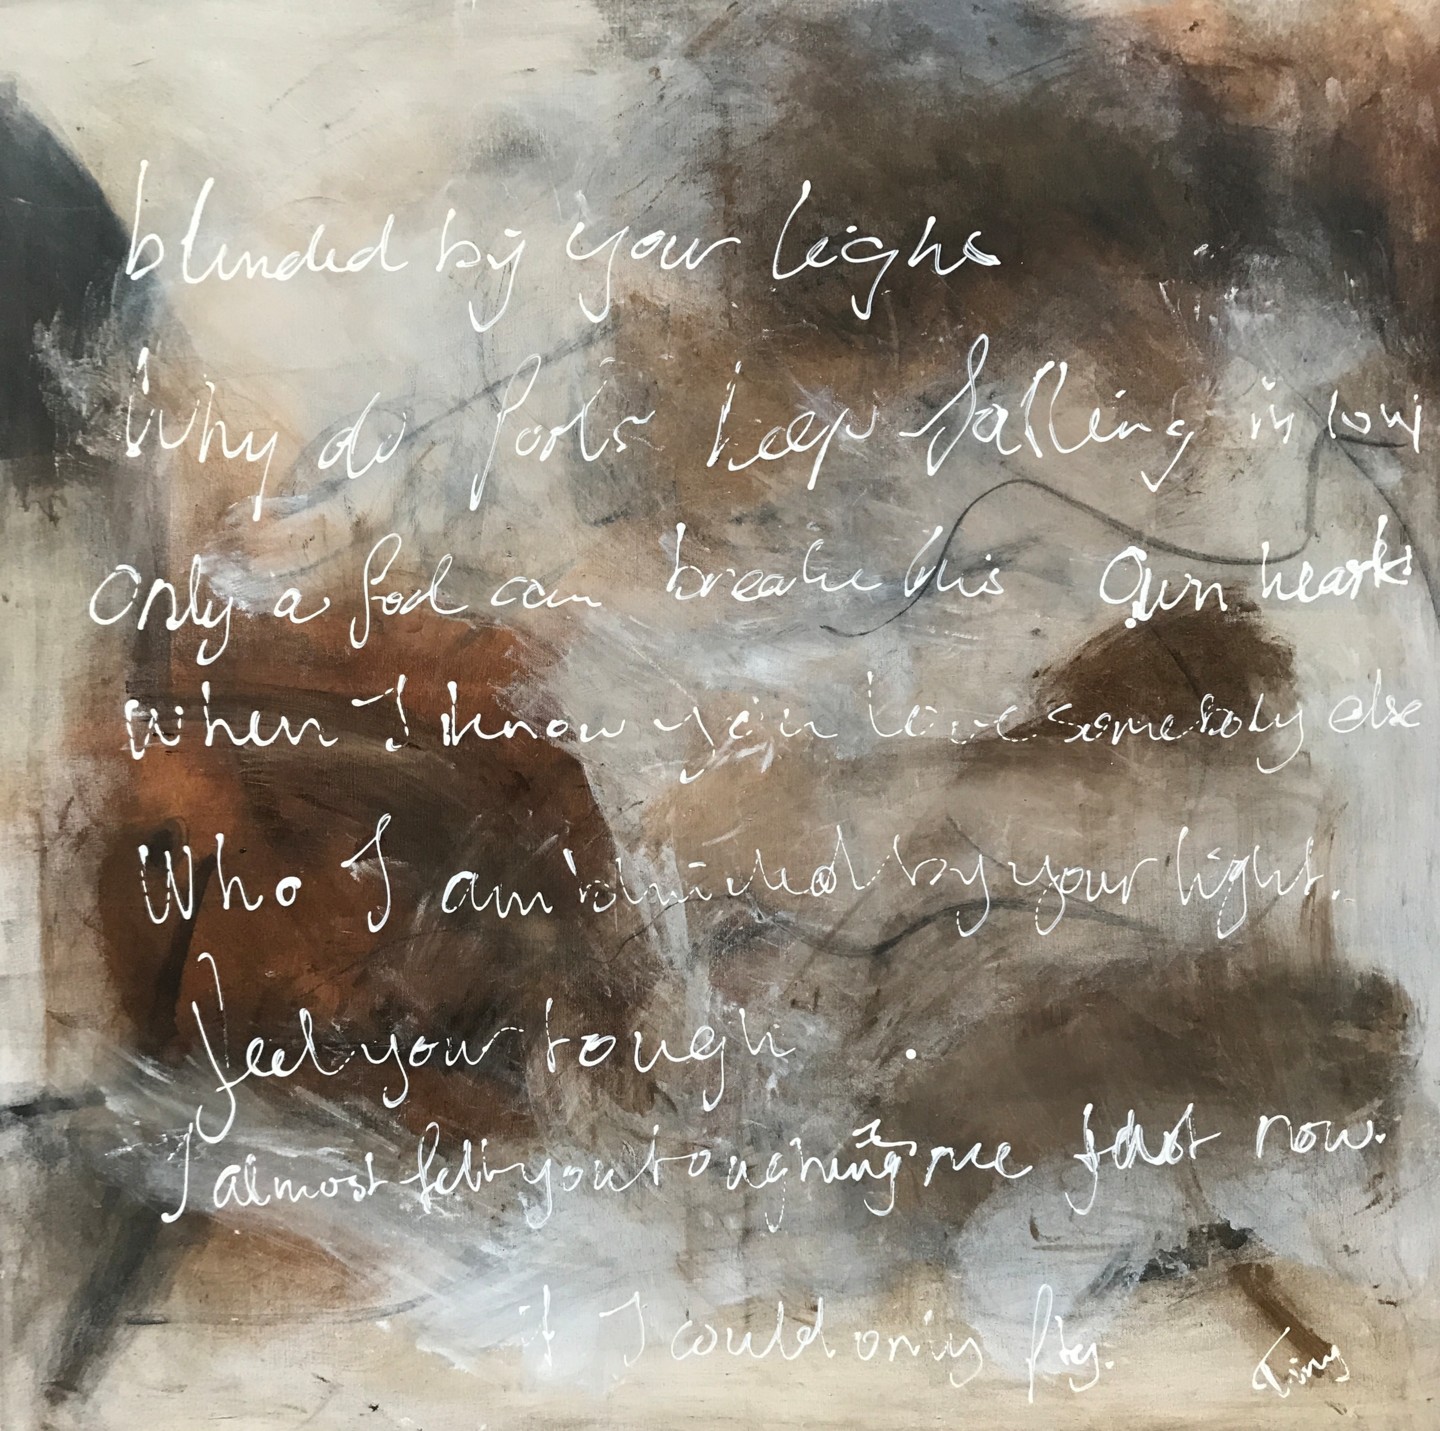 blinded by your light
Why do fools keep falling in love
Only a fool can break his Own heart
When I know you love somebody else
Who I am blinded by your light.
feel your tough
I almost felt you toughing me just now.
if I could only fly.